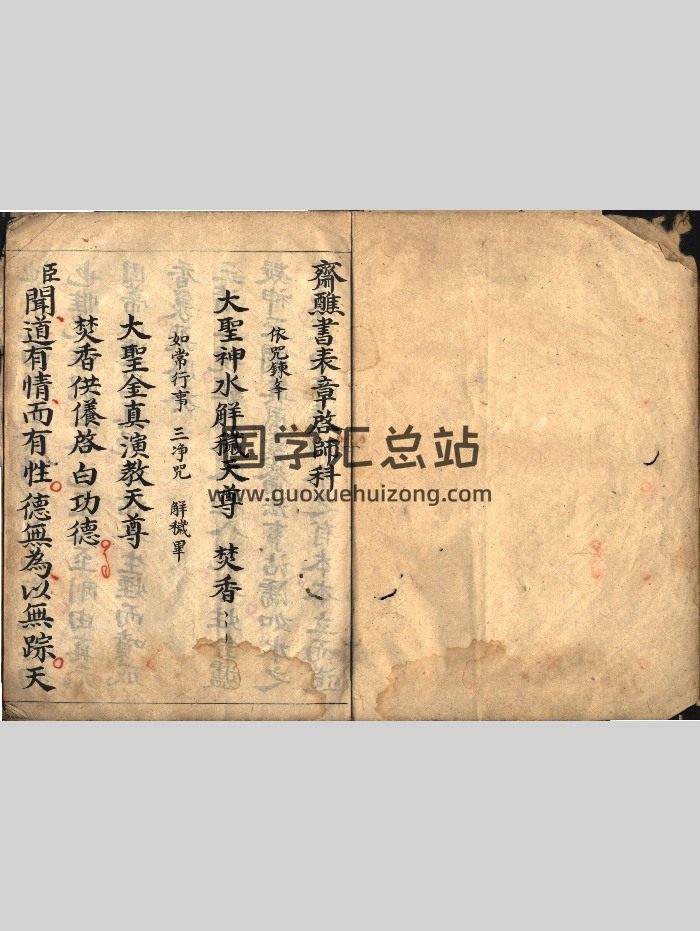 齋醮書表章啓師科
依咒鍊羊
大聖神水解穢天尊 焚香
如常行事 三净咒 解穢畢
大聖金真演教天尊
焚香供養啓白功德
臣聞道有情而有性德無為以無踪天
国学汇总站
www.guoxuehuizong.com